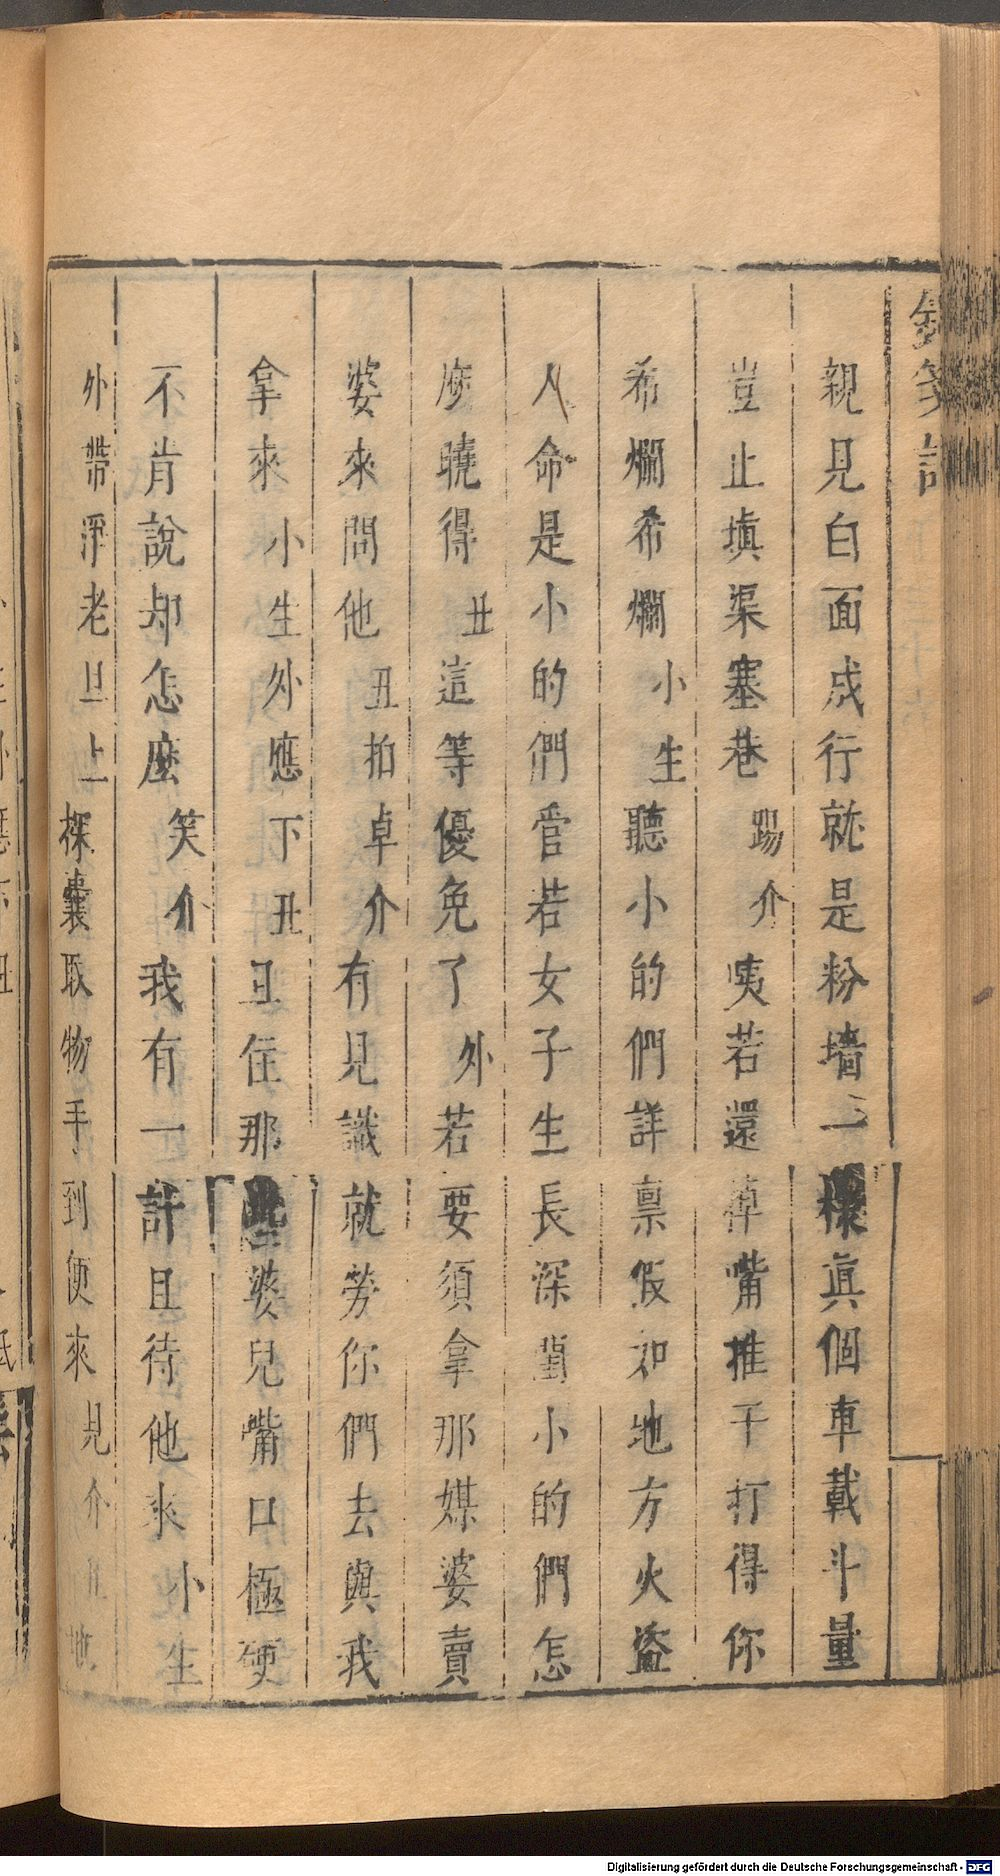 親見白面成行就是粉墻一樣眞個車載斗量
豈止塡渠塞巷踢介咦若還掉嘴推干打得你
希爛希爛小生聽小的們詳稟假如地方火盜
人命是小的們管若女子生長深閨小的們怎
麼曉得丑這等優免了外若要須拿那媒婆賣
婆來問他丑拍卓介有見識就勞你們去與我
拿來小生外應下丑丑住那些婆兒嘴口極硬
不肯說却怎麼笑介我有一計且待他來小生
外帶淨老旦上探囊取物手到便來見介
Digitalisierung gefördert durch die Deutsche Forschungsgemeinschaft - DFG